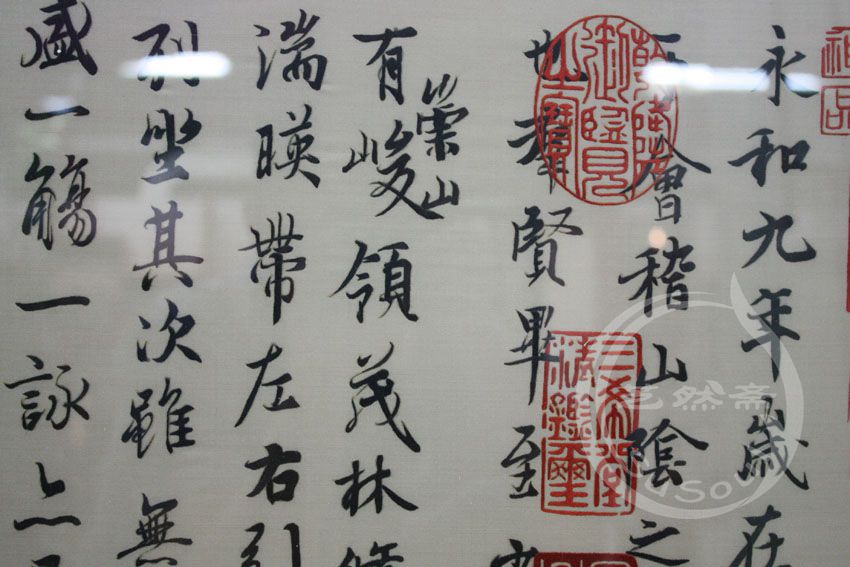 神品
永和九年歲在
會稽山陰之
乾隆御覽之寶
也羣賢畢至
三希堂精鑑璽
有崇山峻領茂林脩
湍暎帶左右引
列坐其次雖無
盛一觴一詠亦